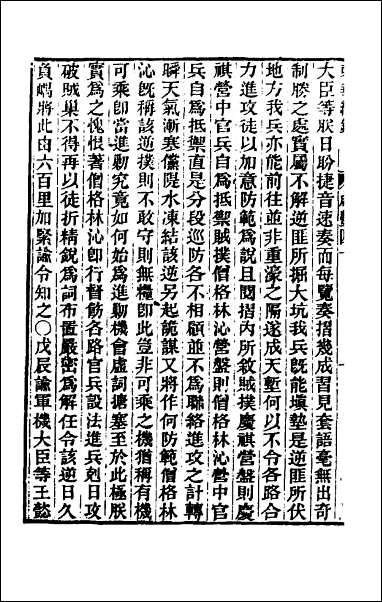 大臣等朕日盼捷音速奏而每覽奏摺幾成習見套語毫無出奇
制勝之處實屬不解逆匪所掘大坑我兵旣能塡墊是逆匪所伏
地方我兵亦能前往並非重濠之隔遂成天塹何以不令各路合
力進攻徒以加意防範爲說且閱摺內所敘賊撲慶祺營盤則慶
祺營中官兵自爲抵禦賊撲僧格林沁營盤則僧格林沁營中官
兵自爲抵禦直是分段廵防各不相顧並不爲聯絡進攻之計轉
瞬天氣漸寒儻隄水凍結該逆另起詭謀又將作何防範僧格林
沁旣稱該逆撲則不敢守則無糧卽此豈非可乘之機猶稱有機
可乘卽當進勦究竟如何始爲進勦機會虛詞搪塞至於此極朕
實爲之愧恨著僧格林沁卽行督飭各路官兵設法進兵剋日攻
破賊巢不得再以徒折精銳爲詞布置嚴密爲解任令該逆日久
負嵎將此由六百里加緊諭令知之〇戊辰諭軍機大臣等王懿